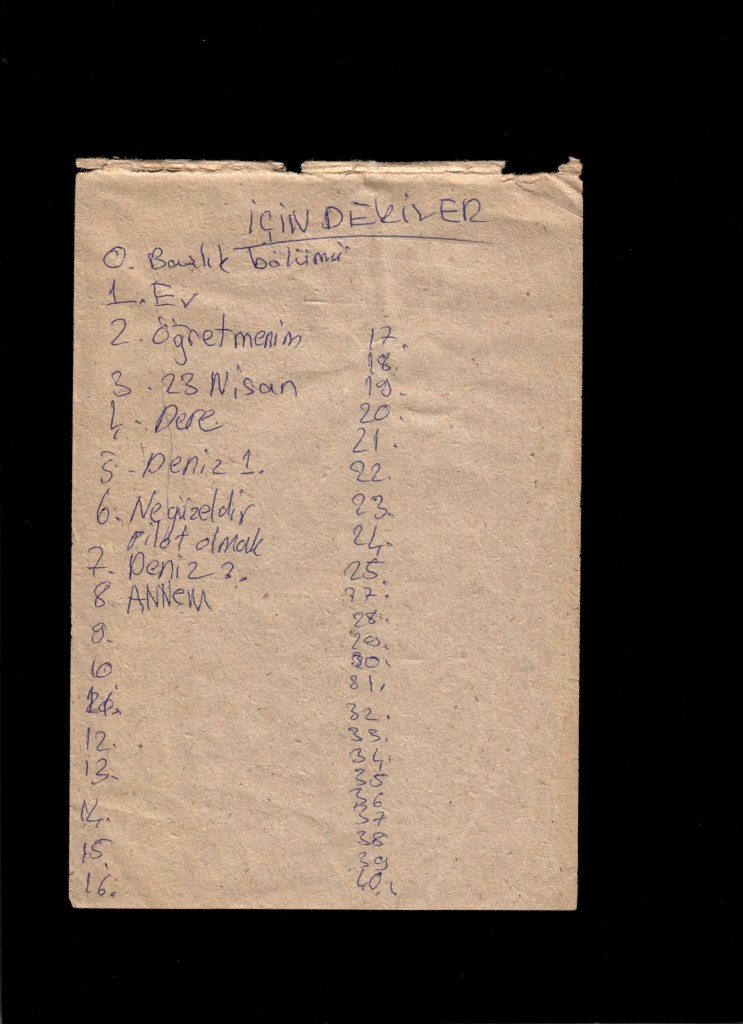 İÇİNDEKİLER
0. Başlık bölümü
1. Ev
2. Öğretmenim
3. 23 Nisan
4. Dere
5. Deniz 1.
6. Ne güzeldir
pilot olmak
7. Deniz 2.
8. ANNEM
9.
10
11.
12.
13.
14.
15.
16.
17.
18.
19.
20.
21.
22.
23.
24.
25.
27.
28.
29.
30.
31.
32.
33.
34.
35
36
37
38
39
40.